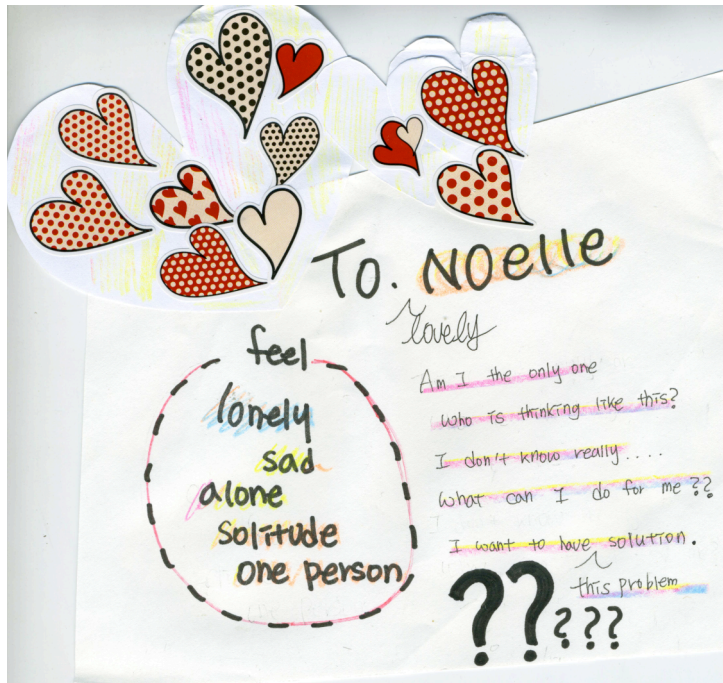 To. NOelle
lovely
feel
lonely
sad
alone
solitude
one person
Am I the only one
who is thinking like this?
I don't know really....
What can I do for me??
I want to have solution.
this problem
?????